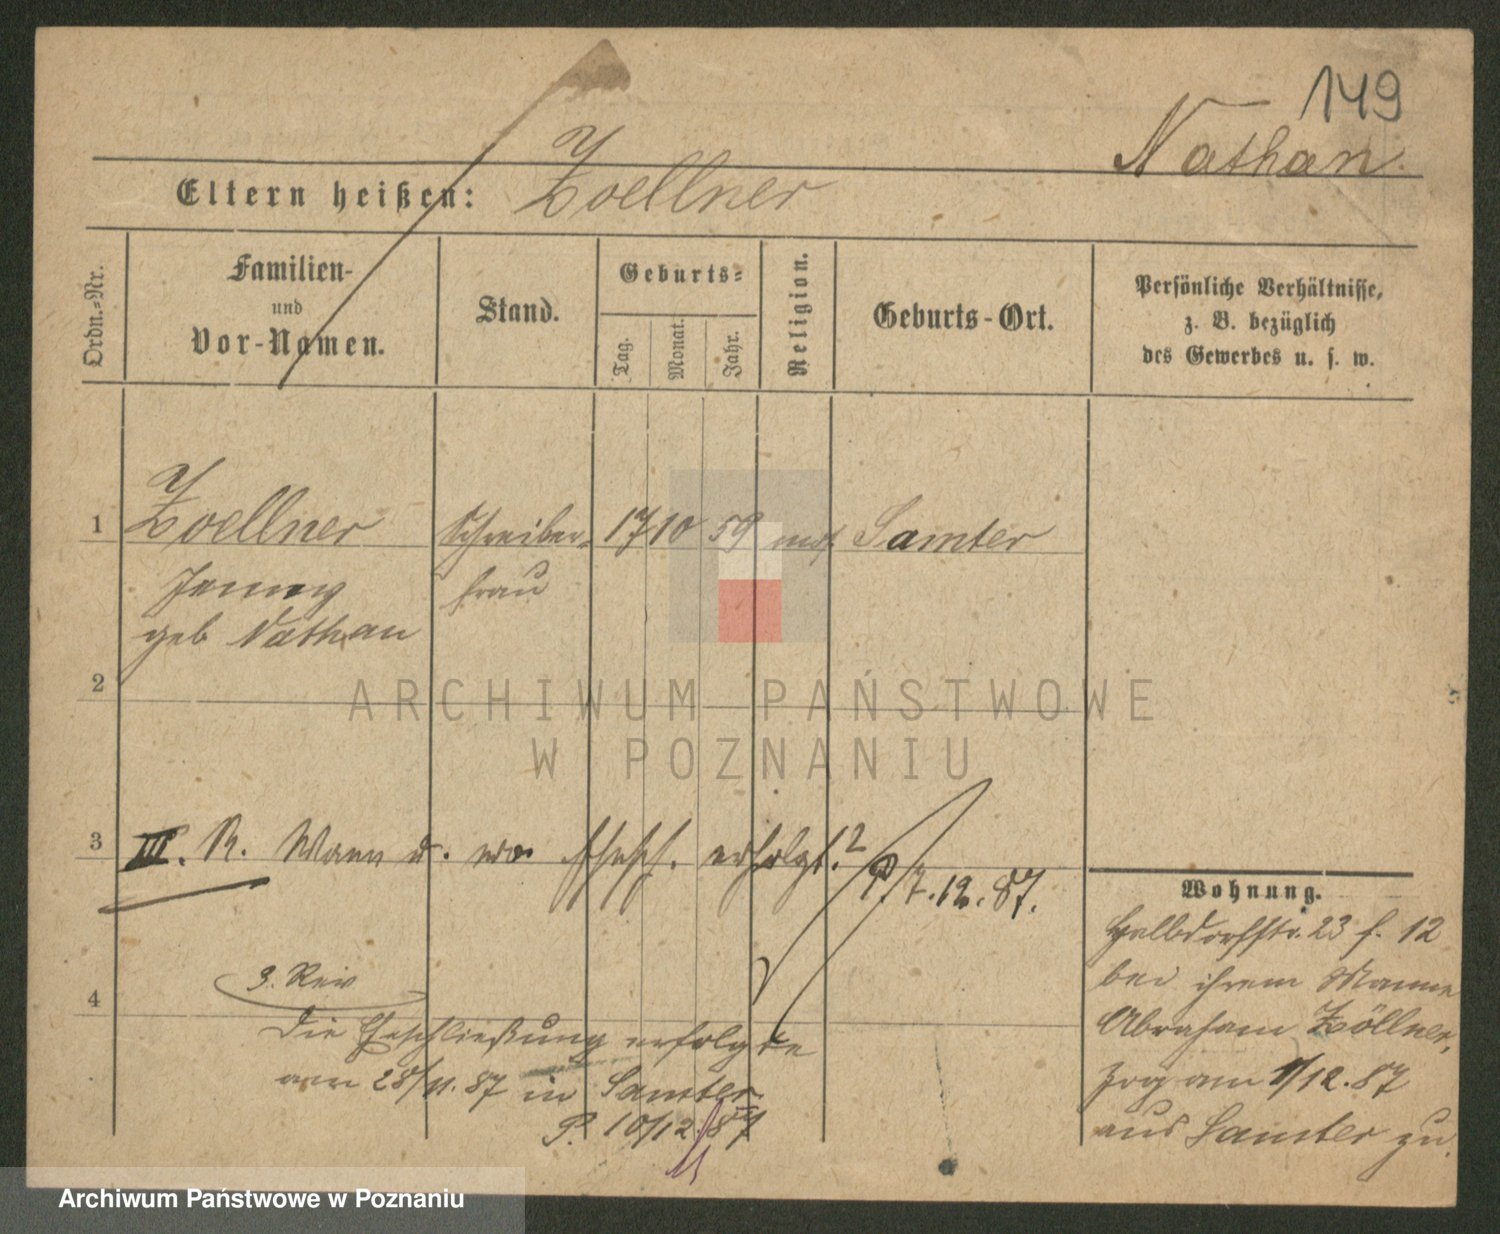 149
Nathan.
Eltern heißen: Zoellner
Ordn.-Nr.
Familien-
und
Vor-Namen.
Stand.
Geburts-
Tag.
Monat.
Jahr.
Religion.
Geburts-Ort.
Persönliche Verhältnisse,
z. B. bezüglich
des Gewerbes u. s. w.
1 Zoellner Schreiber- 17 10 59 mos. Samter
Jenny frau
geb Nathan
2
3 III. R. Wann u. wo Ehesch. erfolgt?
P 7.12.87.
Wohnung.
Halbdorfstr. 23 f. 12
bei ihrem Manne
Abraham Zöllner,
zog am 1/12.87
aus Samter zu.
3. Rev
4
Die Eheschließung erfolgte
am 28/11.87 in Samter.
P. 10/12.87
ARCHIWUM PAŃSTWOWE
W POZNANIU
Archiwum Państwowe w Poznaniu